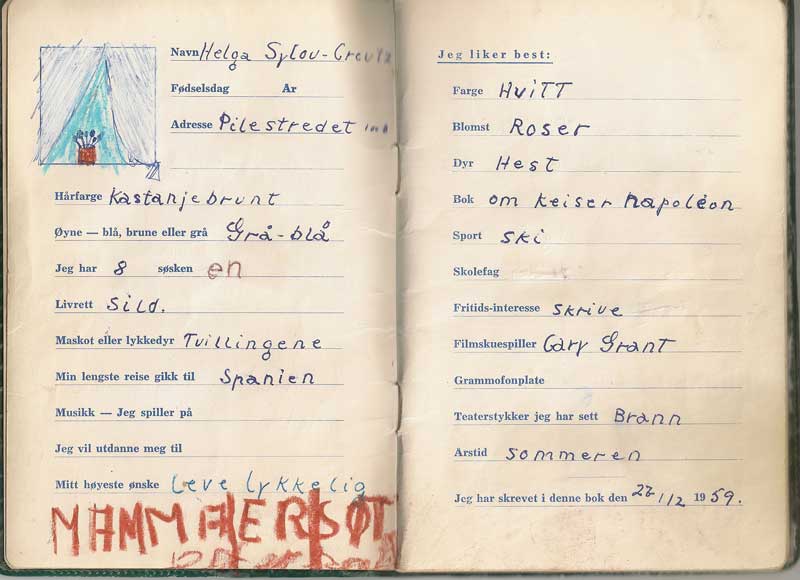 Navn Helga Sylou-Creutz
Fødselsdag År
Adresse Pilestredet
Hårfarge Kastanjebrunt
Øyne — blå, brune eller grå Grå-blå
Jeg har 8 søsken en
Livrett Sild.
Maskot eller lykkedyr Tvillingene
Min lengste reise gikk til Spanien
Musikk — Jeg spiller på
Jeg vil utdanne meg til
Mitt høyeste ønske Leve lykkelig
MAMMA ER SØT
Jeg liker best:
Farge HviTT
Blomst Roser
Dyr Hest
Bok om keiser napoléon
Sport ski
Skolefag
Fritids-interesse skrive
Filmskuespiller Cary Grant
Grammofonplate
Teaterstykker jeg har sett Brann
Årstid sommeren
Jeg har skrevet i denne bok den 1959.